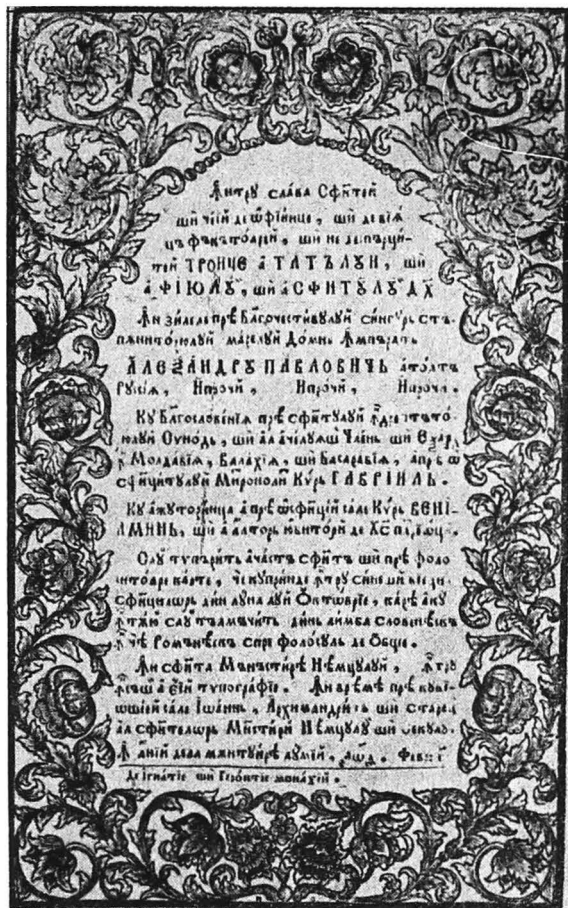 Ꙟтру слава Сфинтей
ши чей деѡфїинце, ши де вїѧ
цъ фъкътоарей, ши не деспърци-
тей ТРОИЦЕ а ТАТЪЛУИ, ши
а ФІЮЛУ, ши а СФНТУЛУ ДХ
Ꙟн зилеле прѣ Благочестивулуй сингурь стъ-
пѫниторюлуй марелуй Домнь Ꙟмпъратъ
АЛЕѮАНДРУ ПАВЛОВИЧЬ атоатъ
Русїѧ, Ипрочїй, Ипрочїй, Ипрочїй.
Ку Благословенїѧ прѣ сфинтулуй
Сѵнодь, ши ал ачелуѧш Члѣнь ши Еѯархъ
Молдавїѧ, Валахїѧ, ши Басаравїѧ, а прѣ ѡ
сфинцитулуй Митрополить Курь ГАВРІИЛЬ.
Ку ажуторинца а прѣ ѡсфинцїей сале Курь ВЕНІ-
АМИНЬ, ши а алторь
Сау типърить ачастъ сфинтъ ши прѣ фоло
ситоаре карте, че куприн де ꙟтру сине
сфинцилѡрь дин луна луй Октѡмврїе, каре аку
ꙟтѫй сау тълмъчить динь лимба Словенѣскъ
ꙟ чѣ Ромѫнѣскъ спре фолосуль де Обще.
Ꙟн сфѫнта Мънъстире Нѣмцулуй, ꙟтру
ꙟсъш а ей типографїе. Ꙟн врѣмѣ прѣ куві-
ѡшїей сале Іѡаннь, Архимандрить ши Старець
ал сфинтелѡрь Мънъстири Нѣмцулуй ши Секулуй.
Ꙟ аний де ла мѫнтуирѣ лумїй, Фев:
де Игнатїе ши Герѡнтїе монахїй.